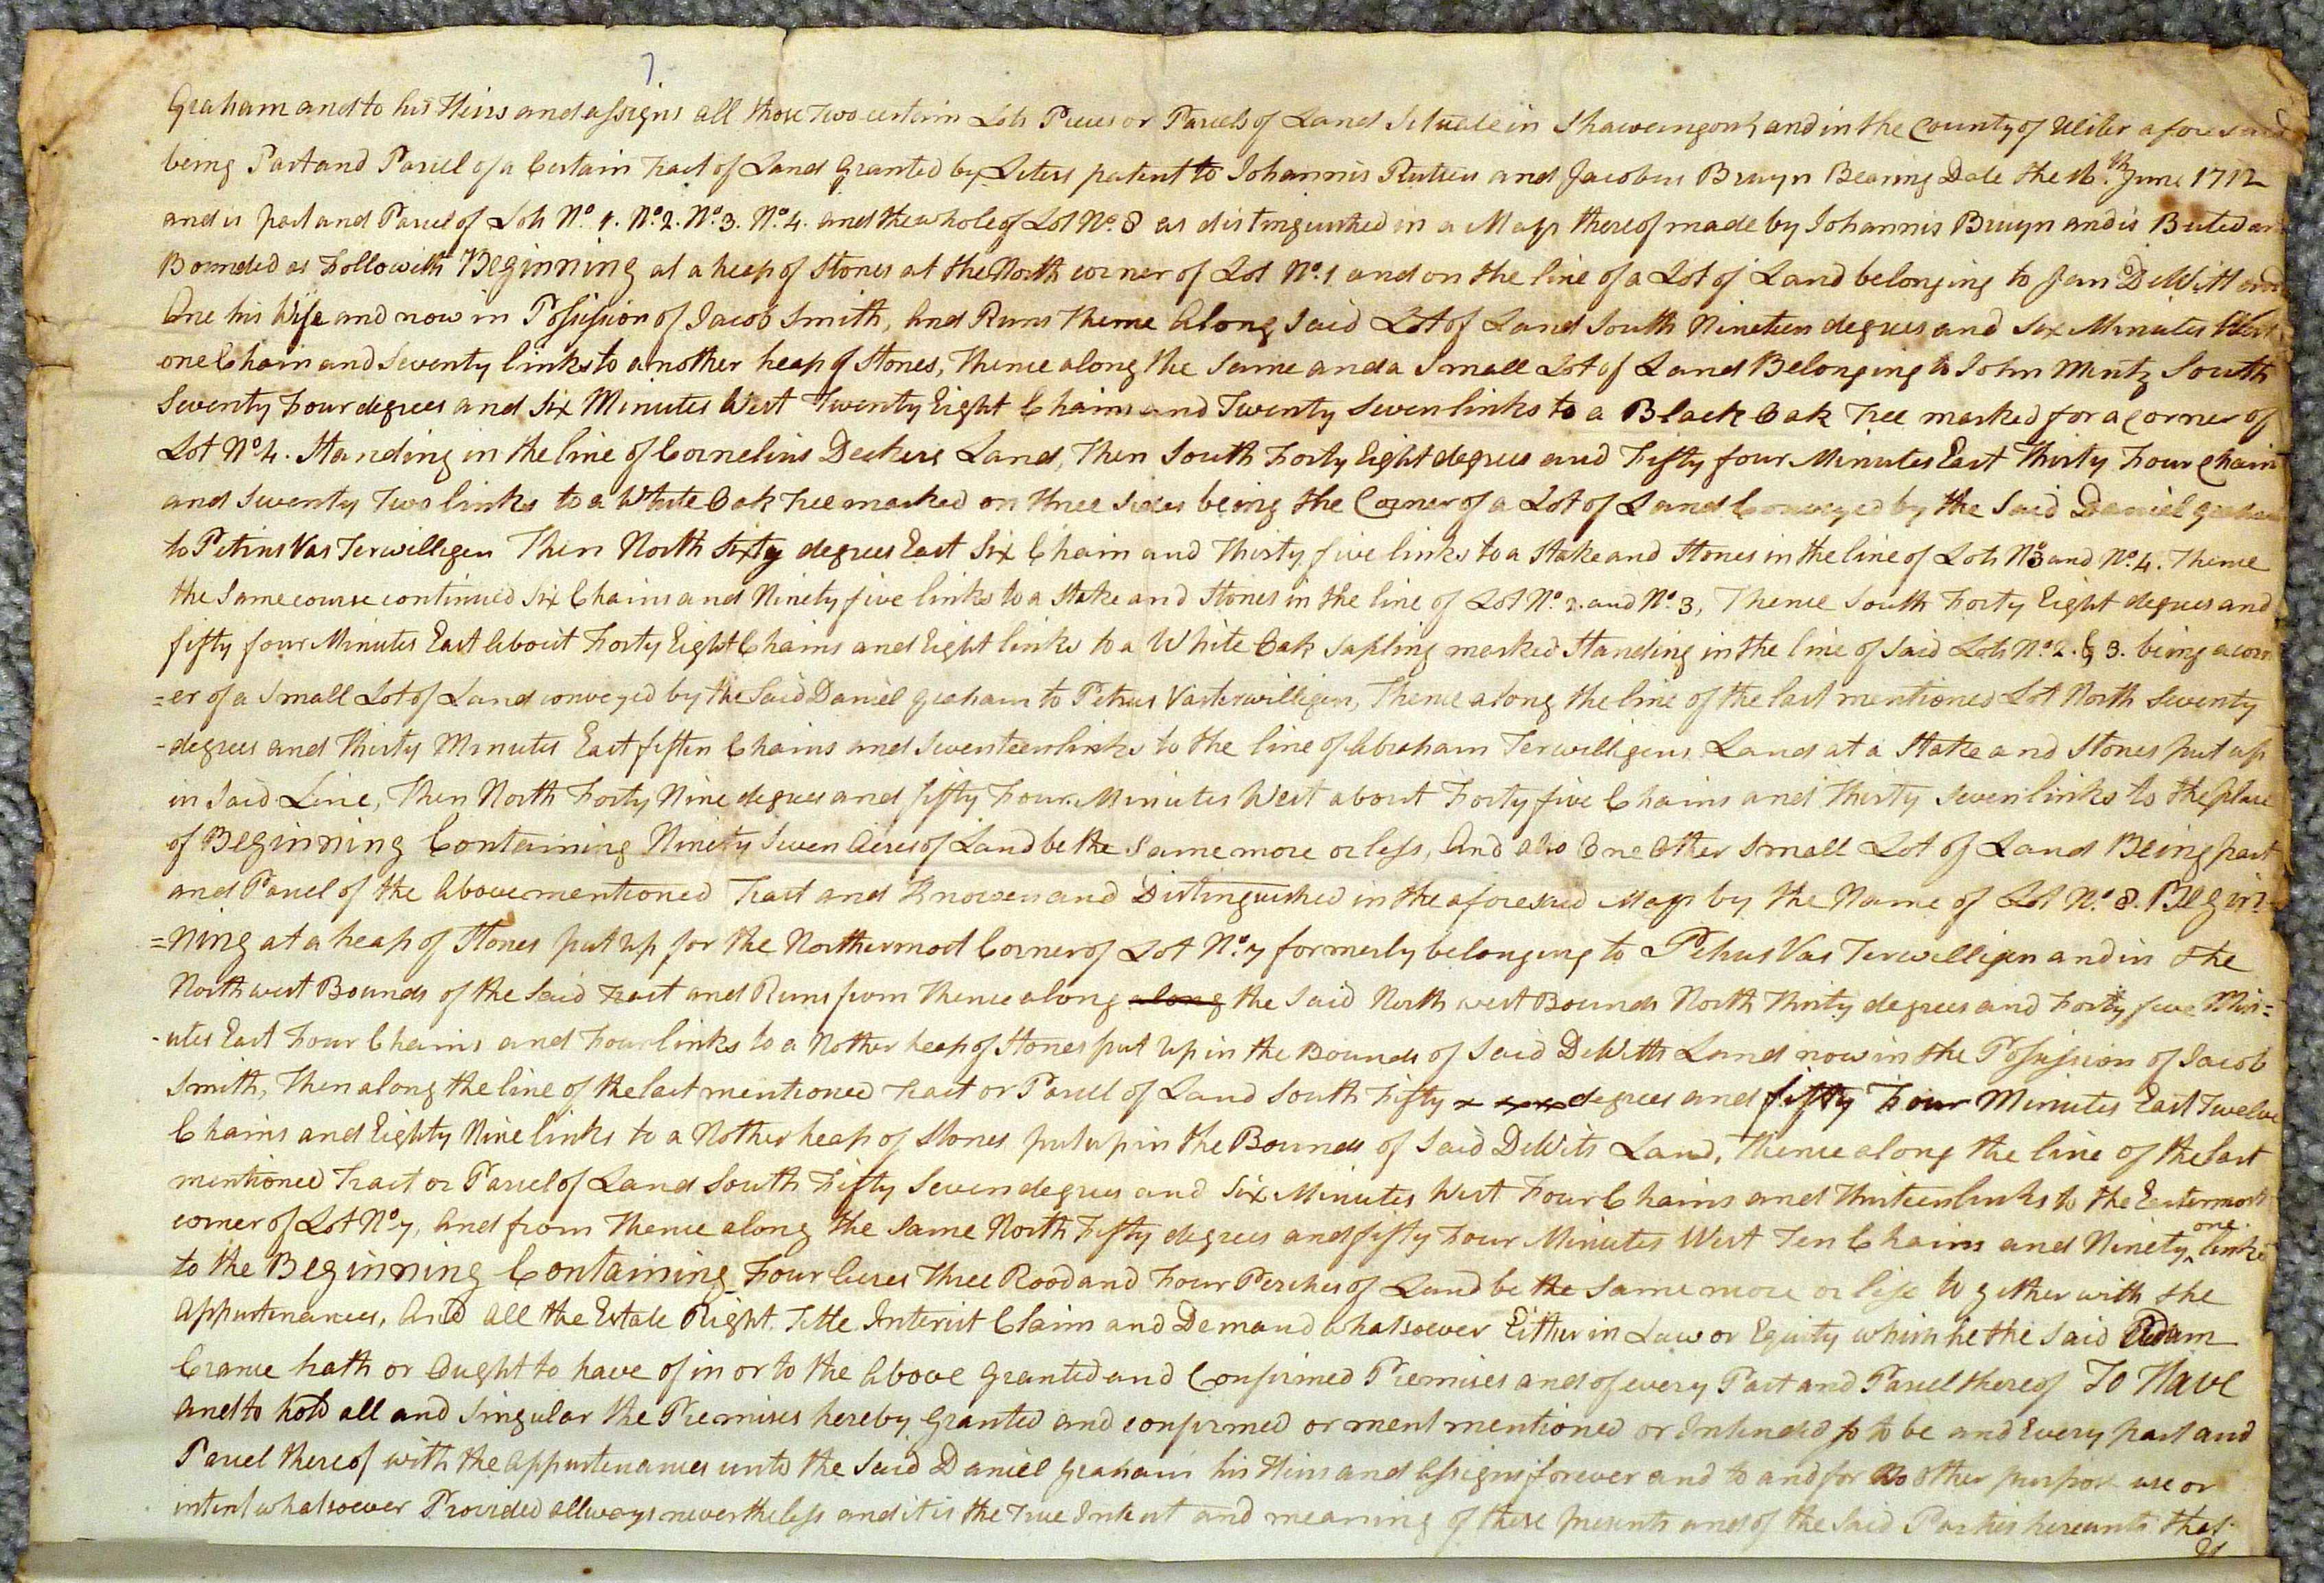 Graham and to his Heirs and assigns all those Two certain Lots Pieces or Parcels of Land Situate in Shawengonk and in the County of Ulster aforesaid
being Part and Parcel of a Certain Tract of Land Granted by Leters patent to Johannis Rutsen and Jacobus Bruyn Bearing Date the 16.th June 1712
and is part and Parcel of Lots No. 1. No. 2. No. 3. No. 4. and the whole of Lot No. 8 as distinguished in a Map thereof made by Johannis Bruyn and is Buted and
Bounded as Followith Beginning at a heap of Stones at the North corner of Lot No. 1 and on the line of a Lot of Land belonging to Jan DeWitt and
Ane his Wife and now in Possession of Jacob Smith, And Runs Thence Along Said Lot of Land South Nineteen degrees and Six Minutes West
one Chain and Seventy links to another heap of Stones, Thence along the Same and a Small Lot of Land Belonging to John Mintz South
Seventy Four degrees and Six Minutes West Twenty Eight Chains and Twenty Seven links to a Black Oak Tree marked for a Corner of
Lot No. 4. Standing in the line of Cornelius Deckers Land, Then South Forty Eight degrees and Fifty four Minutes East Thirty Four Chain
and Seventy Two links to a White Oak Tree marked on three Sides being the Corner of a Lot of Land Conveyed by the Said Daniel Graham
to Petrus Vas Terwilligen Then North Sixty degrees East Six Chain and Thirty five links to a Stake and Stones in the line of Lots No. 3 and No. 4. Thence
the Same course continued Six Chains and Ninety five links to a Stake and Stones in the line of Lot No. 2. and No. 3, Thence South Forty Eight degrees and
fifty four Minutes East About Forty Eight Chains and Eight links to a White Oak Sapling marked Standing in the line of Said Lots No. 2. & 3. being a corn
=er of a Small Lot of Land conveyed by the Said Daniel Graham to Petrus Vasterwilligen, Thence along the line of the last mentioned Lot North Seventy
-degrees and Thirty Minutes East fiften Chains and Seventeen links to the line of Abraham Terwilligens Land at a Stake and Stones put up
in Said Line, Then North Forty Nine degrees and fifty Four Minutes West about Forty five Chains and Thirty Seven links to the place
of Beginning Containing Ninety Seven Acres of Land be the Same more or less, And also One Other Small Lot of Land Being part
and Parcel of the Abovementioned Tract and Knowen and Distinguished in the aforesaid Map by the Name of Lot No. 8. Begin=
=ning at a heap of Stones put up for the Northermost Corner of Lot No. 7 formerly belonging to Petrus Vas Terwilligen and in the
North west Bounds of the Said Tract and Runs from Thence along along the Said North west Bounds North Thirty degrees and Forty five Min=
-utes East Four Chains and Four links to a Nother heap of Stones put Up in the Bounds of Said DeWitts Land now in the Possession of Jacob
Smith, Then along the line of the last mentioned Tract or Parcel of Land South Fifty degrees and fifty Four Minutes East Twelve
Chains and Eighty Nine links to a Nother heap of Stones put up in the Bounds of Said DeWits Land, Thence along the line of the last
mentioned Tract or Parcel of Land South Fifty Seven degrees and Six Minutes West Four Chains and Thirteen links to the Eastermost
corner of Lot No. 7, And from Thence along the Same North Fifty degrees and fifty Four Minutes West Ten Chains and Ninety one links
to the Beginning Containing Four Acres Three Rood and Four Perches of Land be the Same more or less To gether with the
Appurtenances, And all the Estate Right Title Interist Claim and Demand whatsoever Either in Law or Equity which he the Said Adam
Crance hath or Ought to have of in or to the Above Granted and Confirmed Premises and of every Part and Parcel thereof To Have
and to hold all and Singular the Premises hereby Granted and confirmed or ment mentioned or Intended so to be and Every part and
Parcel thereof with the Appurtenances unto the Said Daniel Graham his Heirs and Assigns forever and to and for No other purpose use or
intent whatsoever Provided allways nevertheless and it is the True Intent and meaning of these presents and of the Said Parties hereunto that